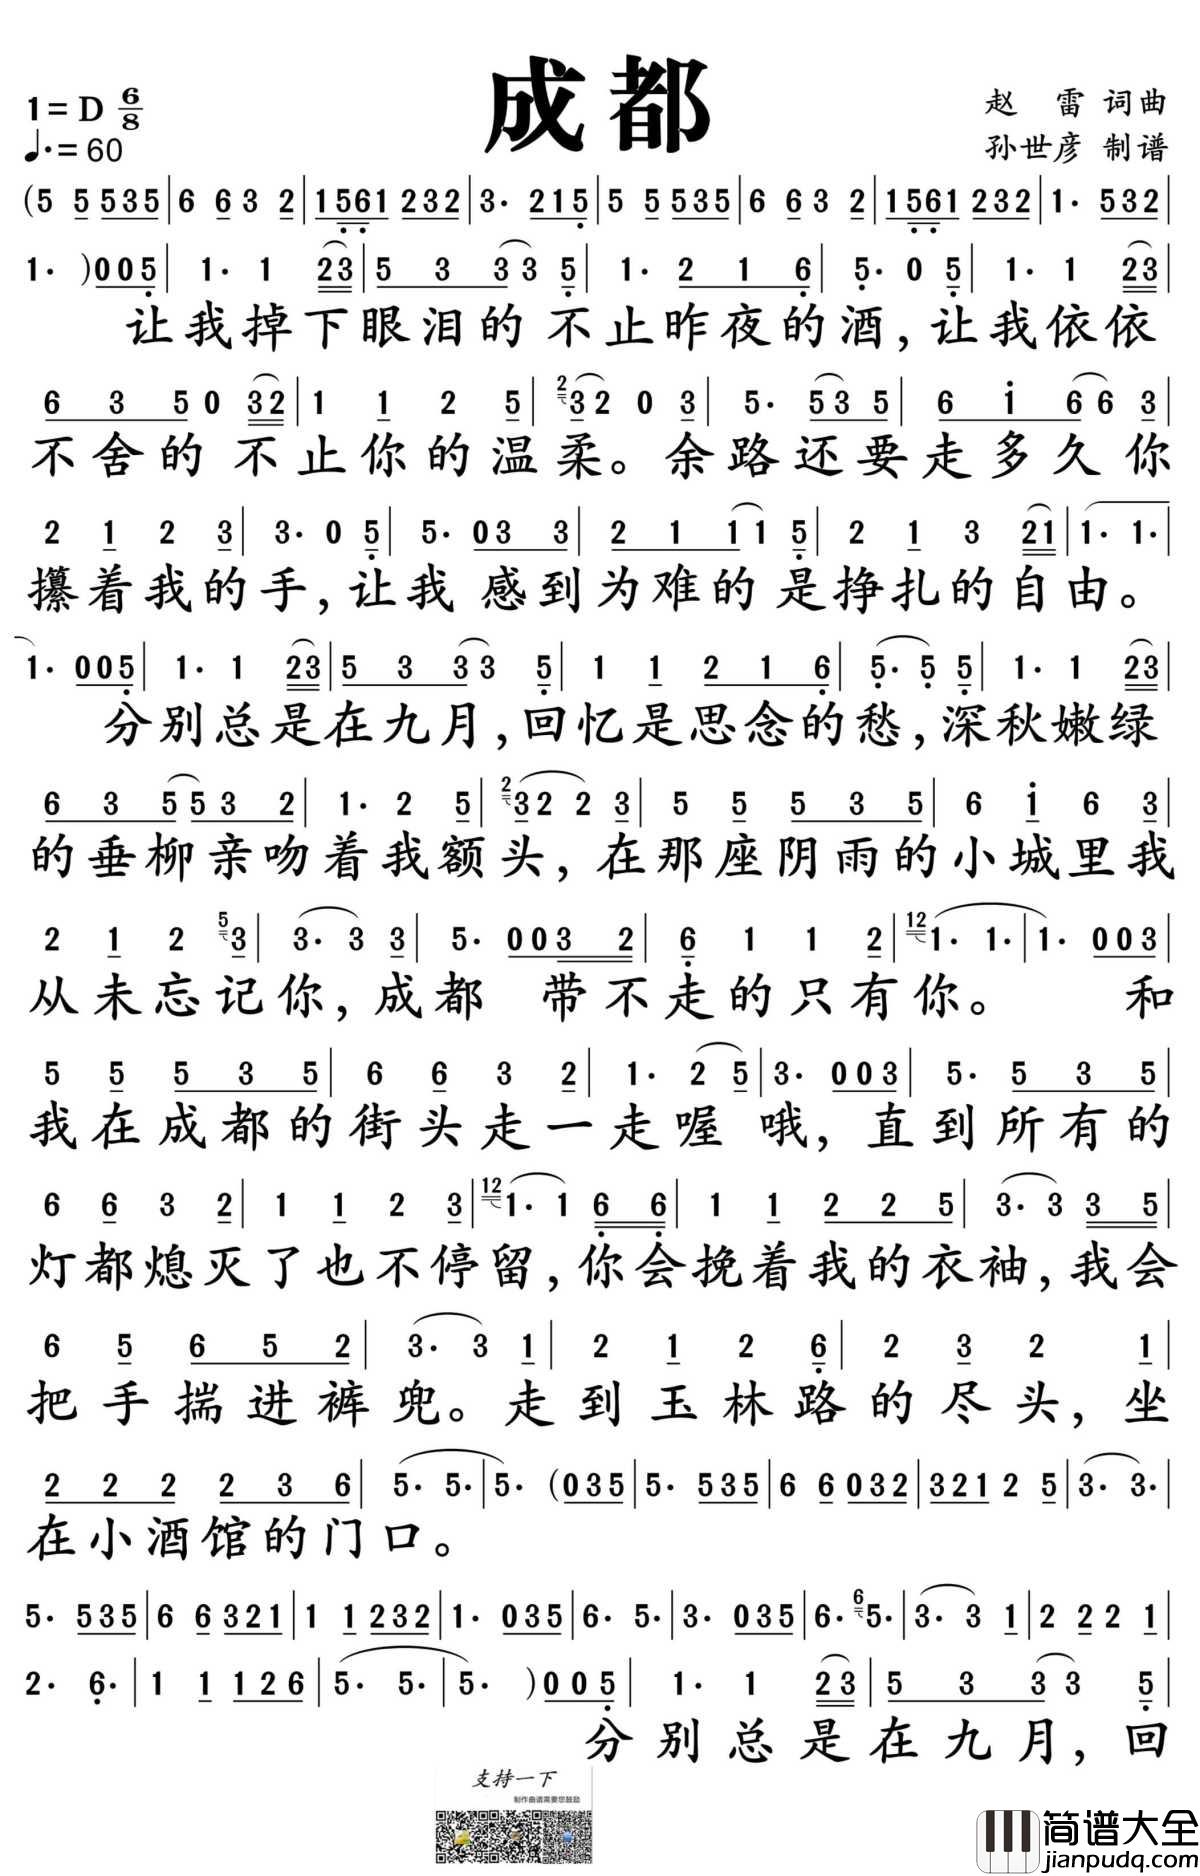 成都
1=D 6/8
♩.=60
赵 雷 词曲
孙世彦 制谱
(5 5 535|6 63 2|1561 232|3· 215|5 5 535|6 63 2|1561 232|1· 532|
1· )005|1· 1 23|5 3 33 5|1· 2 1 6|5· 0 5|1· 1 23|
让我掉下眼泪的 不止昨夜的酒,让我依依
6 3 50 32|1 1 2 5|²32 0 3|5· 53 5|6 i 66 3|
不舍的 不止你的温柔。余路还要走多久你
2 1 2 3|3·0 5|5· 03 3|2 1 11 5|2 1 3 21|1· 1·|
攥着我的手,让我 感到为难的 是挣扎的自由。
1· 005|1· 1 23|5 3 33 5|1 1 2 1 6|5· 5 5|1· 1 23|
分别总是在九月,回忆是思念的愁,深秋嫩绿
6 3 553 2|1· 2 5|²32 2 3|5 5 5 3 5|6 i 6 3|
的垂柳亲吻着我额头,在那座阴雨的小城里我
2 1 2 ⁵3|3· 3 3|5· 003 2|6 1 1 2|¹²1· 1·|1· 003|
从未忘记你,成都 带不走的只有你。 和
5 5 5 3 5|6 6 3 2|1· 2 5|3· 003|5· 5 3 5|
我在成都的街头走一走喔 哦,直到所有的
6 6 3 2|1 1 2 3|¹²1· 1 6 6|1 1 2 2 5|3· 3 3 5|
灯都熄灭了也不停留,你会挽着我的衣袖,我会
6 5 6 5 2|3· 3 1|2 1 2 6|2 3 2 1|
把手揣进裤兜。走到玉林路的尽头,坐
2 2 2 2 3 6|5· 5·|5· (035|5· 535|6 6 032|321 2 5|3· 3·|
在小酒馆的门口。
5· 535|6 6 321|1 1 232|1· 035|6· 5·|3· 035|6· ⁶5·|3· 3 1|2 22 1|
2· 6·|1 1 126|5· 5·|5· )005|1· 1 23|5 3 33 5|
分别总是在九月,回
支持一下
制作曲谱需要您鼓励
简谱大全
jianpudq.com